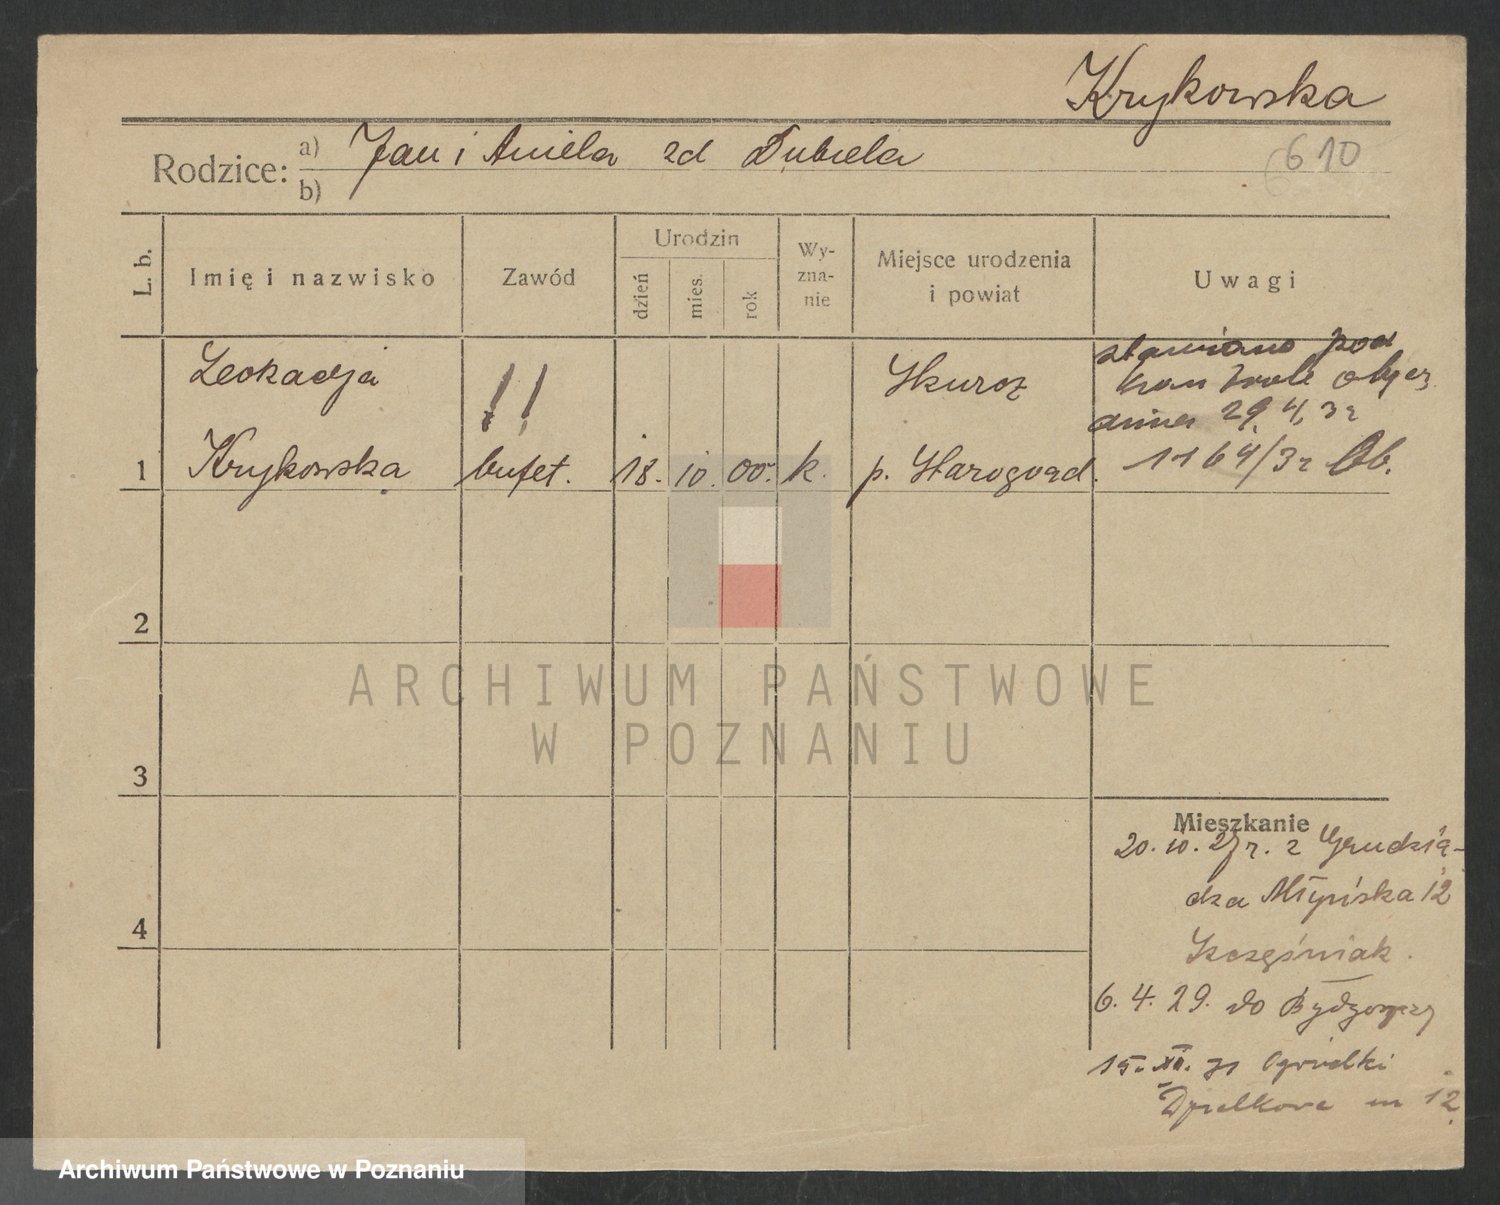 Krykowska
610
Rodzice: a) Jan i Aniela zd Dubiela
b)
L. b.
Imię i nazwisko
Zawód
Urodzin
dzień
mies.
rok
Wy-
zna-
nie
Miejsce urodzenia
i powiat
Uwagi
Leokadja
!!
Skurcz
stawiono pod
kontrole obycz
dnia 29.4.32
1 Krykowska bufet. 18. 10. 00. k. p. Starogard. 1164/32 Ob.
2
3
4
Mieszkanie
20. 10. 27 r. z Grudzią-
dza Młyńska 12
Szczęśniak.
6. 4. 29. do Bydgoszczy
15. XII. 31 Ogródki
Działkowe m 12
ARCHIWUM PAŃSTWOWE
W POZNANIU
Archiwum Państwowe w Poznaniu